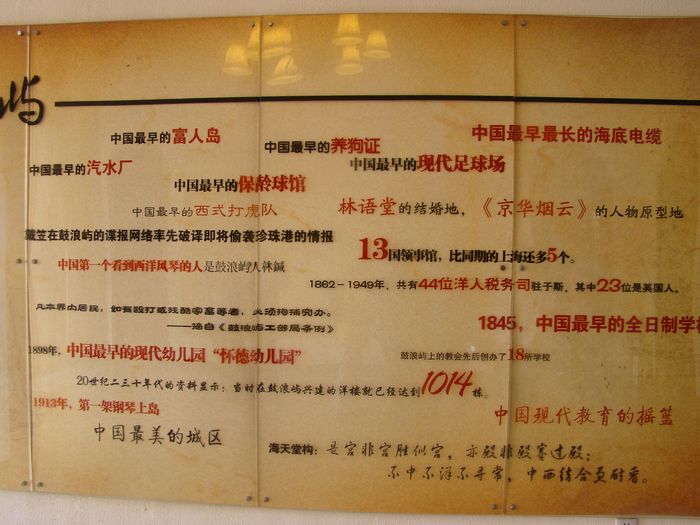 屿
中国最早的富人岛
中国最早的养狗证
中国最早最长的海底电缆
中国最早的汽水厂
中国最早的现代足球场
中国最早的保龄球馆
中国最早的西式打虎队
林语堂的结婚地，《京华烟云》的人物原型地
戴笠在鼓浪屿的谍报网络率先破译即将偷袭珍珠港的情报
13国领事馆，比同期的上海还多5个。
中国第一个看到西洋风琴的人是鼓浪屿人林鍼
1862－1949年，共有44位洋人税务司驻于斯，其中23位是英国人。
凡本界内居民，如有殴打或残酷客畜等者，必须拘捕究办。
——摘自《鼓浪屿工部局条例》
1845，中国最早的全日制学校
1898年，中国最早的现代幼儿园“怀德幼儿园”
鼓浪屿上的教会先后创办了18所学校
20世纪二三十年代的资料显示：当时在鼓浪屿兴建的洋楼就已经达到1014栋。
1913年，第一架钢琴上岛
中国现代教育的摇篮
中国最美的城区
海天堂构：是宫非宫胜似宫，亦殿非殿赛过殿；
不中不洋不寻常，中西结合更耐看。